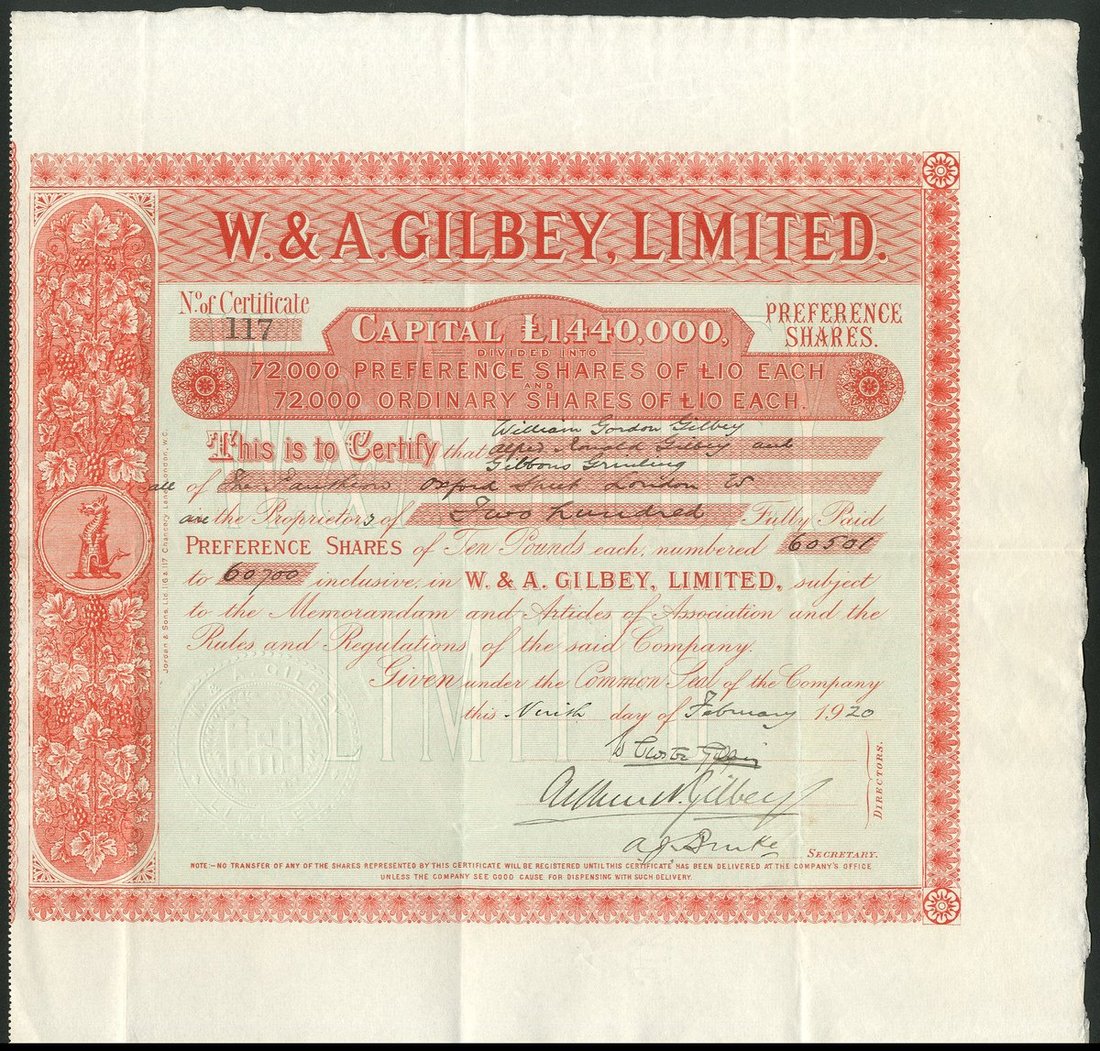 W. & A. GILBEY, LIMITED.
No. of Certificate
117
CAPITAL £1,440,000,
DIVIDED INTO
72,000 PREFERENCE SHARES OF £10 EACH
AND
72,000 ORDINARY SHARES OF £10 EACH.
PREFERENCE
SHARES.
William Gordon Gilbey
This is to Certify that Alfred Ronald Gilbey and
Gibbons Grinling
all of The Pantheon Oxford Street London W
are the Proprietors of Two hundred Fully Paid
PREFERENCE SHARES of Ten Pounds each, numbered 60501
to 60700 inclusive, in W. & A. GILBEY, LIMITED, subject
to the Memorandam and Articles of Association and the
Rules and Regulations of the said Company.
Given under the Common Seal of the Company
this Ninth day of February 1920
Arthur N. Gilbey
DIRECTORS.
SECRETARY.
NOTE:—NO TRANSFER OF ANY OF THE SHARES REPRESENTED BY THIS CERTIFICATE WILL BE REGISTERED UNTIL THIS CERTIFICATE HAS BEEN DELIVERED AT THE COMPANY'S OFFICE
UNLESS THE COMPANY SEE GOOD CAUSE FOR DISPENSING WITH SUCH DELIVERY.
Jordan & Sons, Ltd. 116 & 117 Chancery Lane, London, W.C.
W. & A. GILBEY
LIMITED